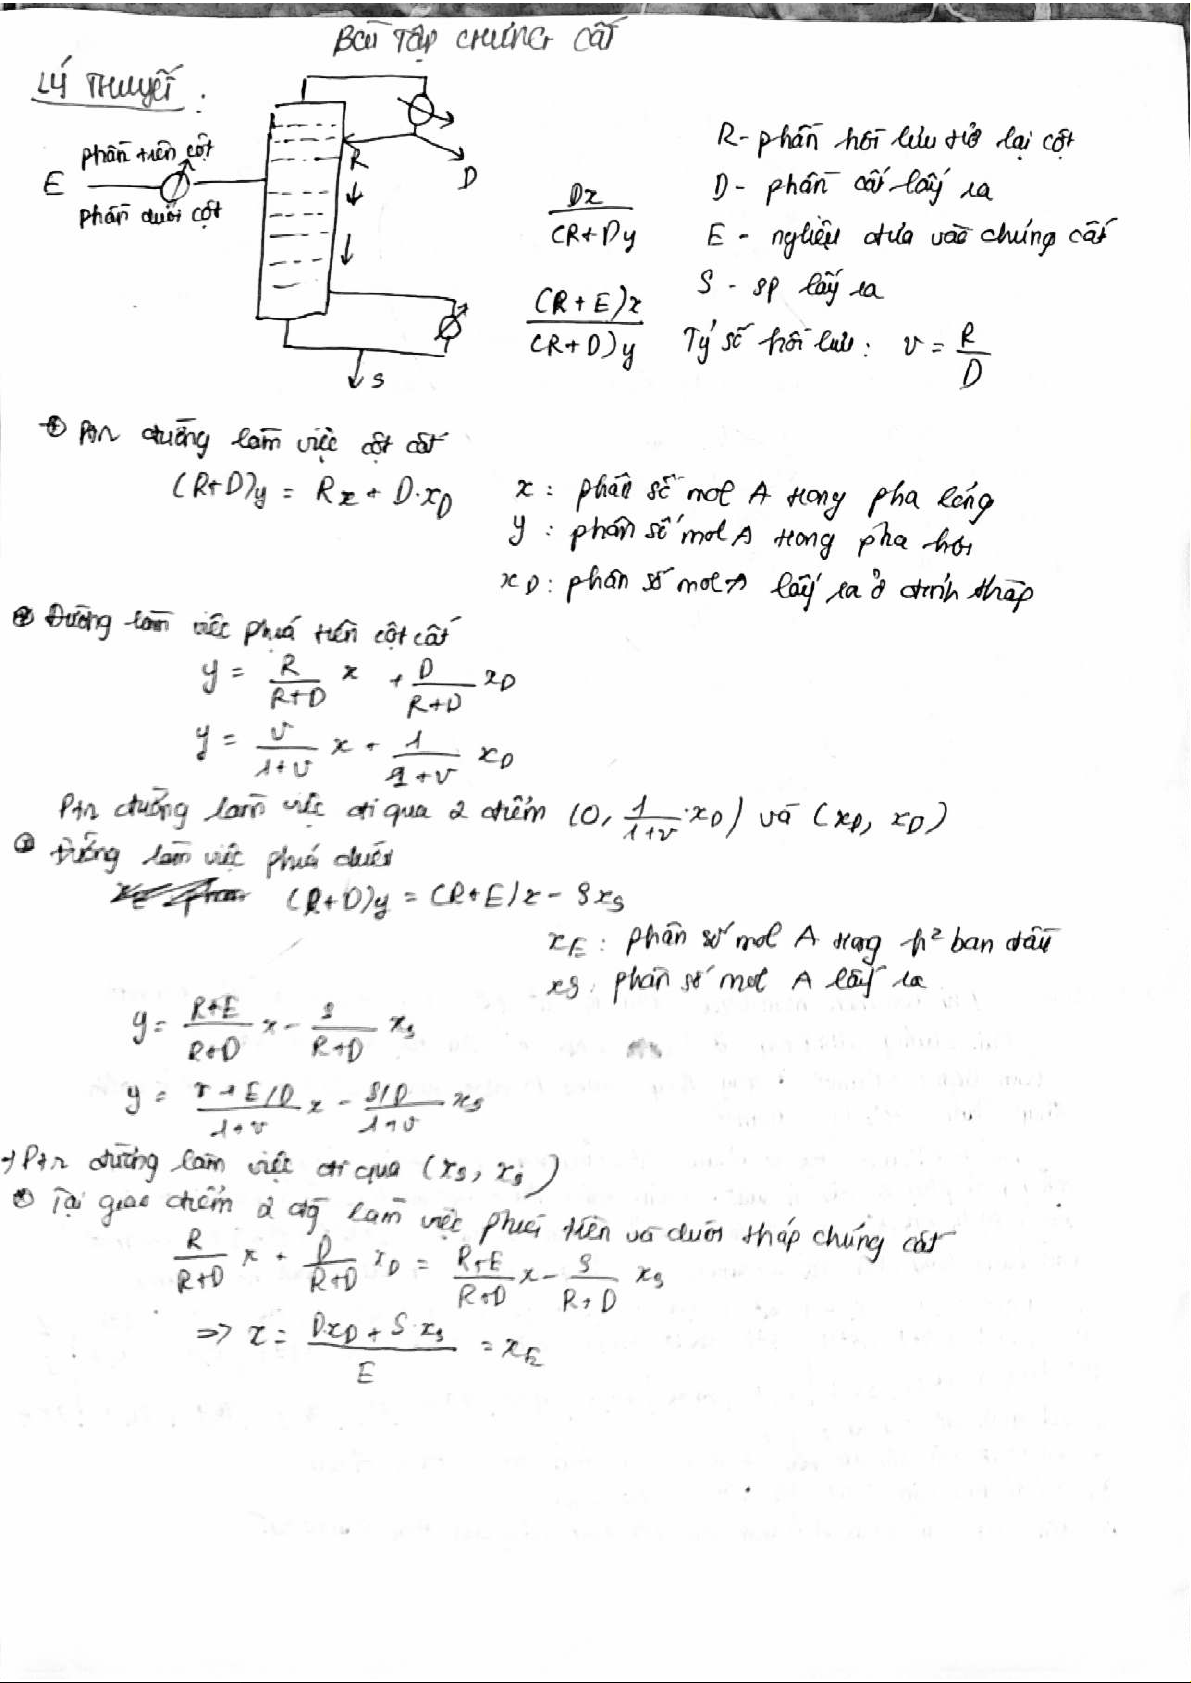 BÀI TẬP CHƯNG CẤT
LÝ THUYẾT :
phần trên cột
E
phần dưới cột
R
D
S
Dx / (R+Dy
(R+E)x / (R+D)y
R - phần hồi lưu trở lại cột
D - phần cất lấy ra
E - nghiệu đưa vào chưng cất
S - sp lấy ra
Tỷ số hồi lưu : v = R/D
Ptr đường làm việc cột cất
(R+D)y = Rx + D.xD
x : phần số mol A trong pha lỏng
y : phần số mol A trong pha hơi
xD : phần số mol A lấy ra ở đỉnh tháp
Đường làm việc phía trên cột cất
y = R/(R+D) x + D/(R+D) xD
y = v/(1+v) x + 1/(1+v) xD
Ptr đường làm việc đi qua 2 điểm (0, 1/(1+v) . xD) và (xD, xD)
Đường làm việc phía dưới
(R+D)y = (R+E)x - SxS
xE : phần số mol A trong h² ban đầu
xS : phần số mol A lấy ra
y = (R+E)/(R+D) x - S/(R+D) xS
y = (v + E/D)/(1+v) x - (S/D)/(1+v) xS
→ Ptr đường làm việc đi qua (xS, xS)
Tại giao điểm 2 đg làm việc phía trên và dưới tháp chưng cất
R/(R+D) x + D/(R+D) xD = (R+E)/(R+D) x - S/(R+D) xS
=> x = (D.xD + S.xS)/E = xE